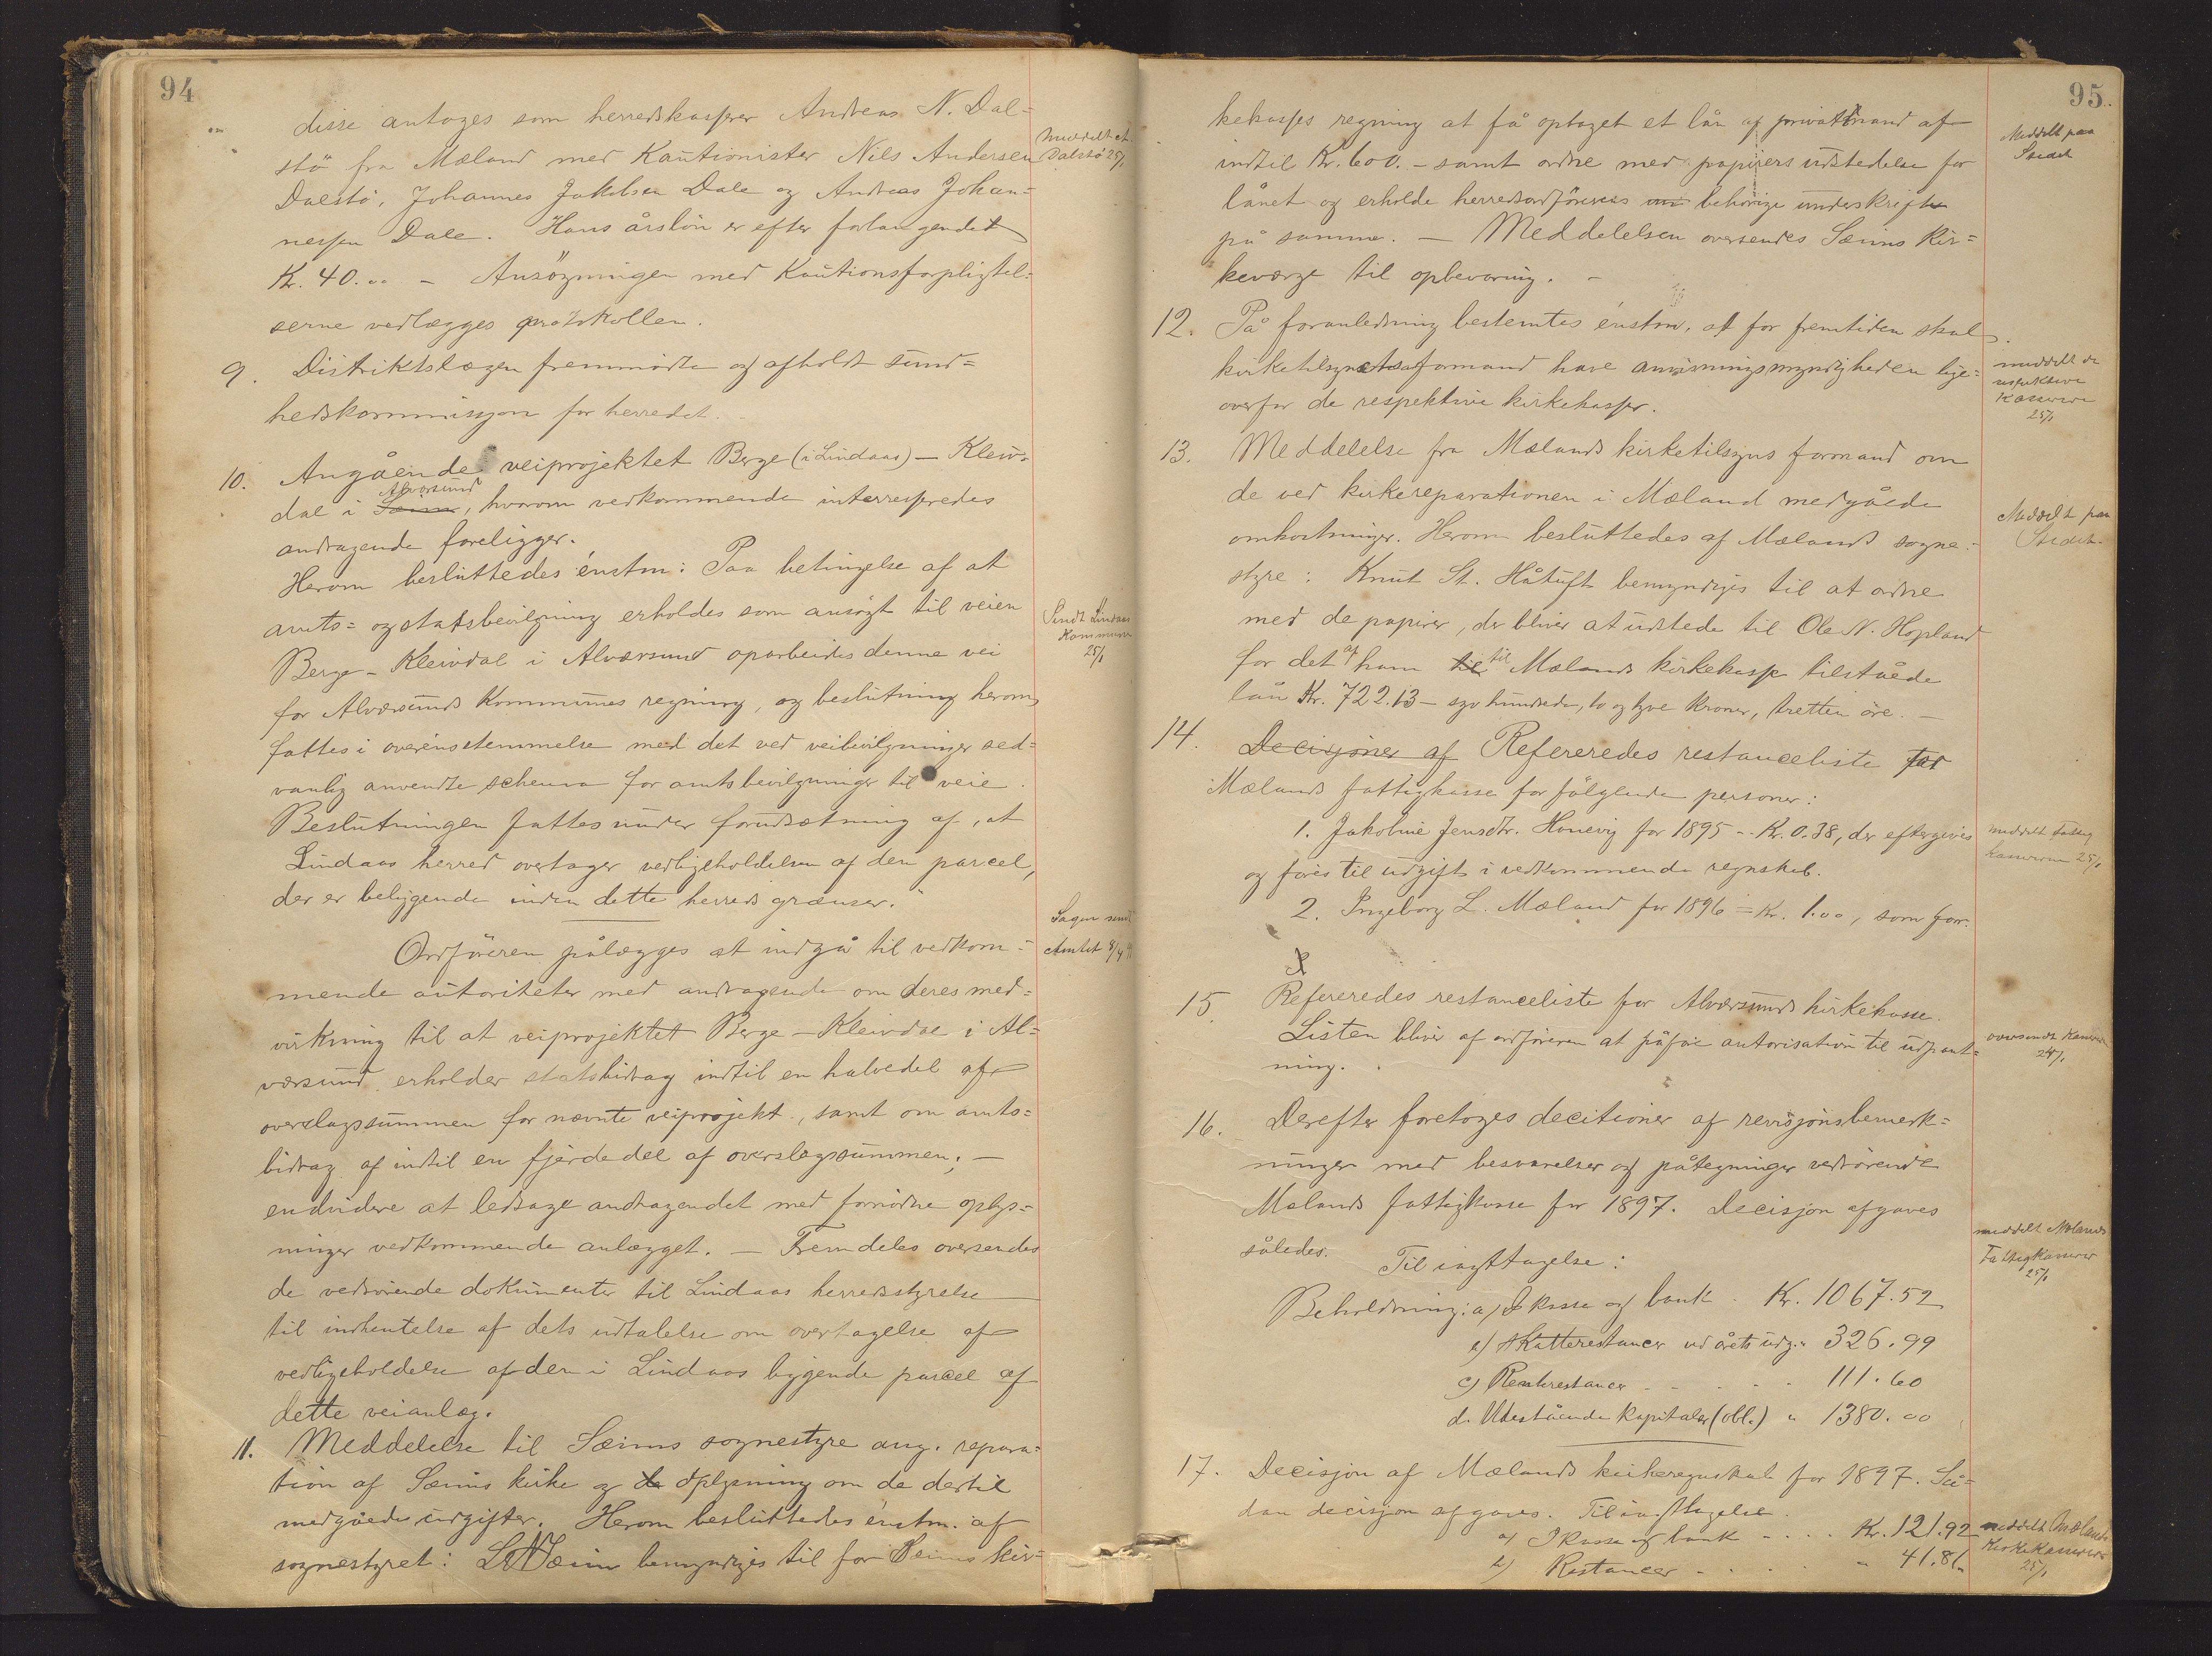 94
disse antoges som herredskasserer Andreas N. Dal=
stö fra Mæland med Kautionister Nils Andersen
Dalstö, Johannes Jakobsen Dale og Andreas Johan=
nessen Dale. Hans årslön er efter forlangendet
Kr. 40.00 - Ansögningen med Kautionsforpligtel=
serne vedlægges protokollen.
meddelt
Dalstö 25/1
9. Distriktslægen fremmödte og afholdt sund=
hedskommisjon for herredet.
10. Angående veiprojektet Berge (i Lindaas) - Kleiv=
dal i Sæim Alversund, hvorom vedkommende interesseredes
andragende foreligger.
Herom besluttedes énstm: Paa betingelse af at
amts= og statsbevilgning erholdes som ansögt til veien
Berge - Kleivdal i Alværsund oparbeides denne vei
for Alværsunds Kommunes regning, og beslutning herom
fattes i overensstemmelse med det ved veibevilgninger sed=
vanlig anvendte schema for amtsbevilgninger til veie.
Beslutningen fattes under forudsætning af, at
Lindaas herred overtager vedligeholdelsen af den parcel,
der er beliggende inden dette herreds grænser."
Sendt Lindaas
Kommune
25/1
Ordföreren pålægges at indgå til vedkom=
mende autoriteter med andragende om deres med=
virkning til at veiprojektet Berge - Kleivdal i Al=
værsund erholder statsbidrag indtil en halvedel af
overslagssummen for nævnte veiprojekt, samt om amts=
bidrag af indtil en fjerdedel af overslagssummen; -
endvidere at ledsage andragendet med fornödne oplys=
ninger vedkommende anlægget. - Fremdeles oversendes
de vedrörende dokumenter til Lindaas herredsstyrelse
til indhentelse af dets udtalelse om overtagelse af
vedligeholdelse af den i Lindaas liggende parcel af
dette veianlæg.
Sagen sendt
Amtet 8/4
11. Meddelelse til Sæims sognestyre ang. repara=
tion af Sæims kirke og de oplysning om de dertil
medgåede udgifter. Herom besluttedes énstm. af
sognestyret: Sæim bemyndiges til for Seims kir=
95.
kekasses regning at få optaget et lån af privatmand af
indtil Kr. 600. - samt ordne med papirers udstedelse for
lånet og erholde herredsordförerens om behörige underskrifter
på samme. - Meddelelsen oversendes Sæims kir=
keværge til opbevaring. -
Meddelt paa
Stedet
12. På foranledning bestemtes énstm. at for fremtiden skal
kirketilsynets formand have anvisningsmyndigheden lige=
overfor de respektive kirkekasser.
meddelt de
respektive
Kasserere
25/1
13. Meddelelse fra Mælands kirketilsyns formand om
de ved kirkereparationen i Mæland medgåede
omkostninger. Herom besluttedes af Mælands sogne=
styre: Knut St. Håtuft bemyndiges til at ordne
med de papirer, der bliver at udstede til Ole N. Hopland
for det af ham til til Mælands kirkekasse tilståede
lån Kr. 722.13 - syv hundrede, to og tyve kroner, tretten öre. -
Meddelt paa
Stedet.
14. Decisjoner af Refereredes restanceliste for
Mælands fattigkasse for fölgende personer:
1. Jakobine Jensdtr. Honevig for 1895 - Kr. 0.38, der eftergives
og föres til udgift i vedkommende regnskab.
2. Ingeborg L. Mæland for 1896 = Kr. 1.00, som forr.
meddelt fattig
kasserern 25/1
15. Refereredes restanceliste for Alværsunds kirkekasse.
Listen bliver af ordföreren at påföie autorisation til udpant=
ning.
oversendt Kasserer
25/1
16. Derefter foretoges decitioner af revisjonsbemerk=
ninger med besvarelser og påtegninger vedrörende
Mælands fattigkasse for 1897. Decisjon afgaves
således. Til iagttagelse:
Beholdning: a) I kasse og bank Kr. 1067.52
b) Skatterestancer ved årets udg. " 326.99
c) Rentrestancer - - - - 111.60
d. Udestående Kapitaler (obl.) " 1380.00
meddelt Mælands
Fattigkasserer
25/1
17. Decisjon af Mælands kirkeregnskab for 1897. Så=
dan decisjon afgaves. Til iagttagelse
a) I kasse og bank - - - - Kr. 121.92
b) Restancer - - - - " 41.86
meddelt Mælands
Kirkekasserer
25/1